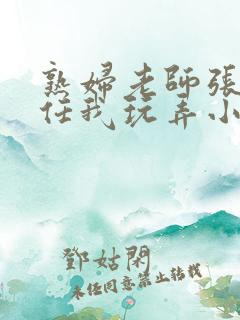 熟婦老師張
任我玩弄小
鄧姑閑
未任同意禁止转载